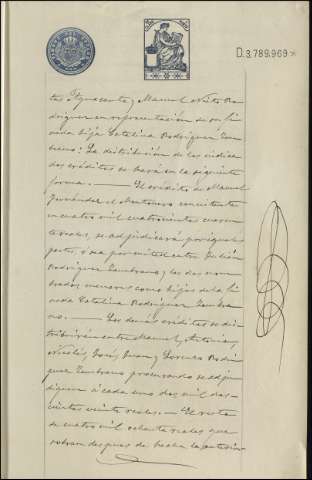 D.3.789.969
tes Aguacante y Manuel Nieto Ro-
driguez en representación de su fi-
nada hija Catalina Rodriguez Zam-
brano: La distribución de los indica-
dos créditos se hará en la siguiente
forma. — El crédito de Manuel
Fernández el Montonero consistente
en cuatro mil cuatrocientos cuaren-
ta reales, se adjudicará por iguales
partes, ó sea por mitad entre Julián
Rodriguez Zambrano y los dos nom-
brados menores como hijos de la fi-
nada Catalina Rodriguez Zambra-
no. — Los demás créditos se dis-
tribuirán entre Manuel, Antonia,
Nicolás, José, Juan y Lorenzo Rodri-
guez Zambrano procurando se adju-
diquen á cada uno dos mil dos-
cientos veinte reales. — El resto
de cuatro mil ochenta reales que
sobran despues de hecha la anterior